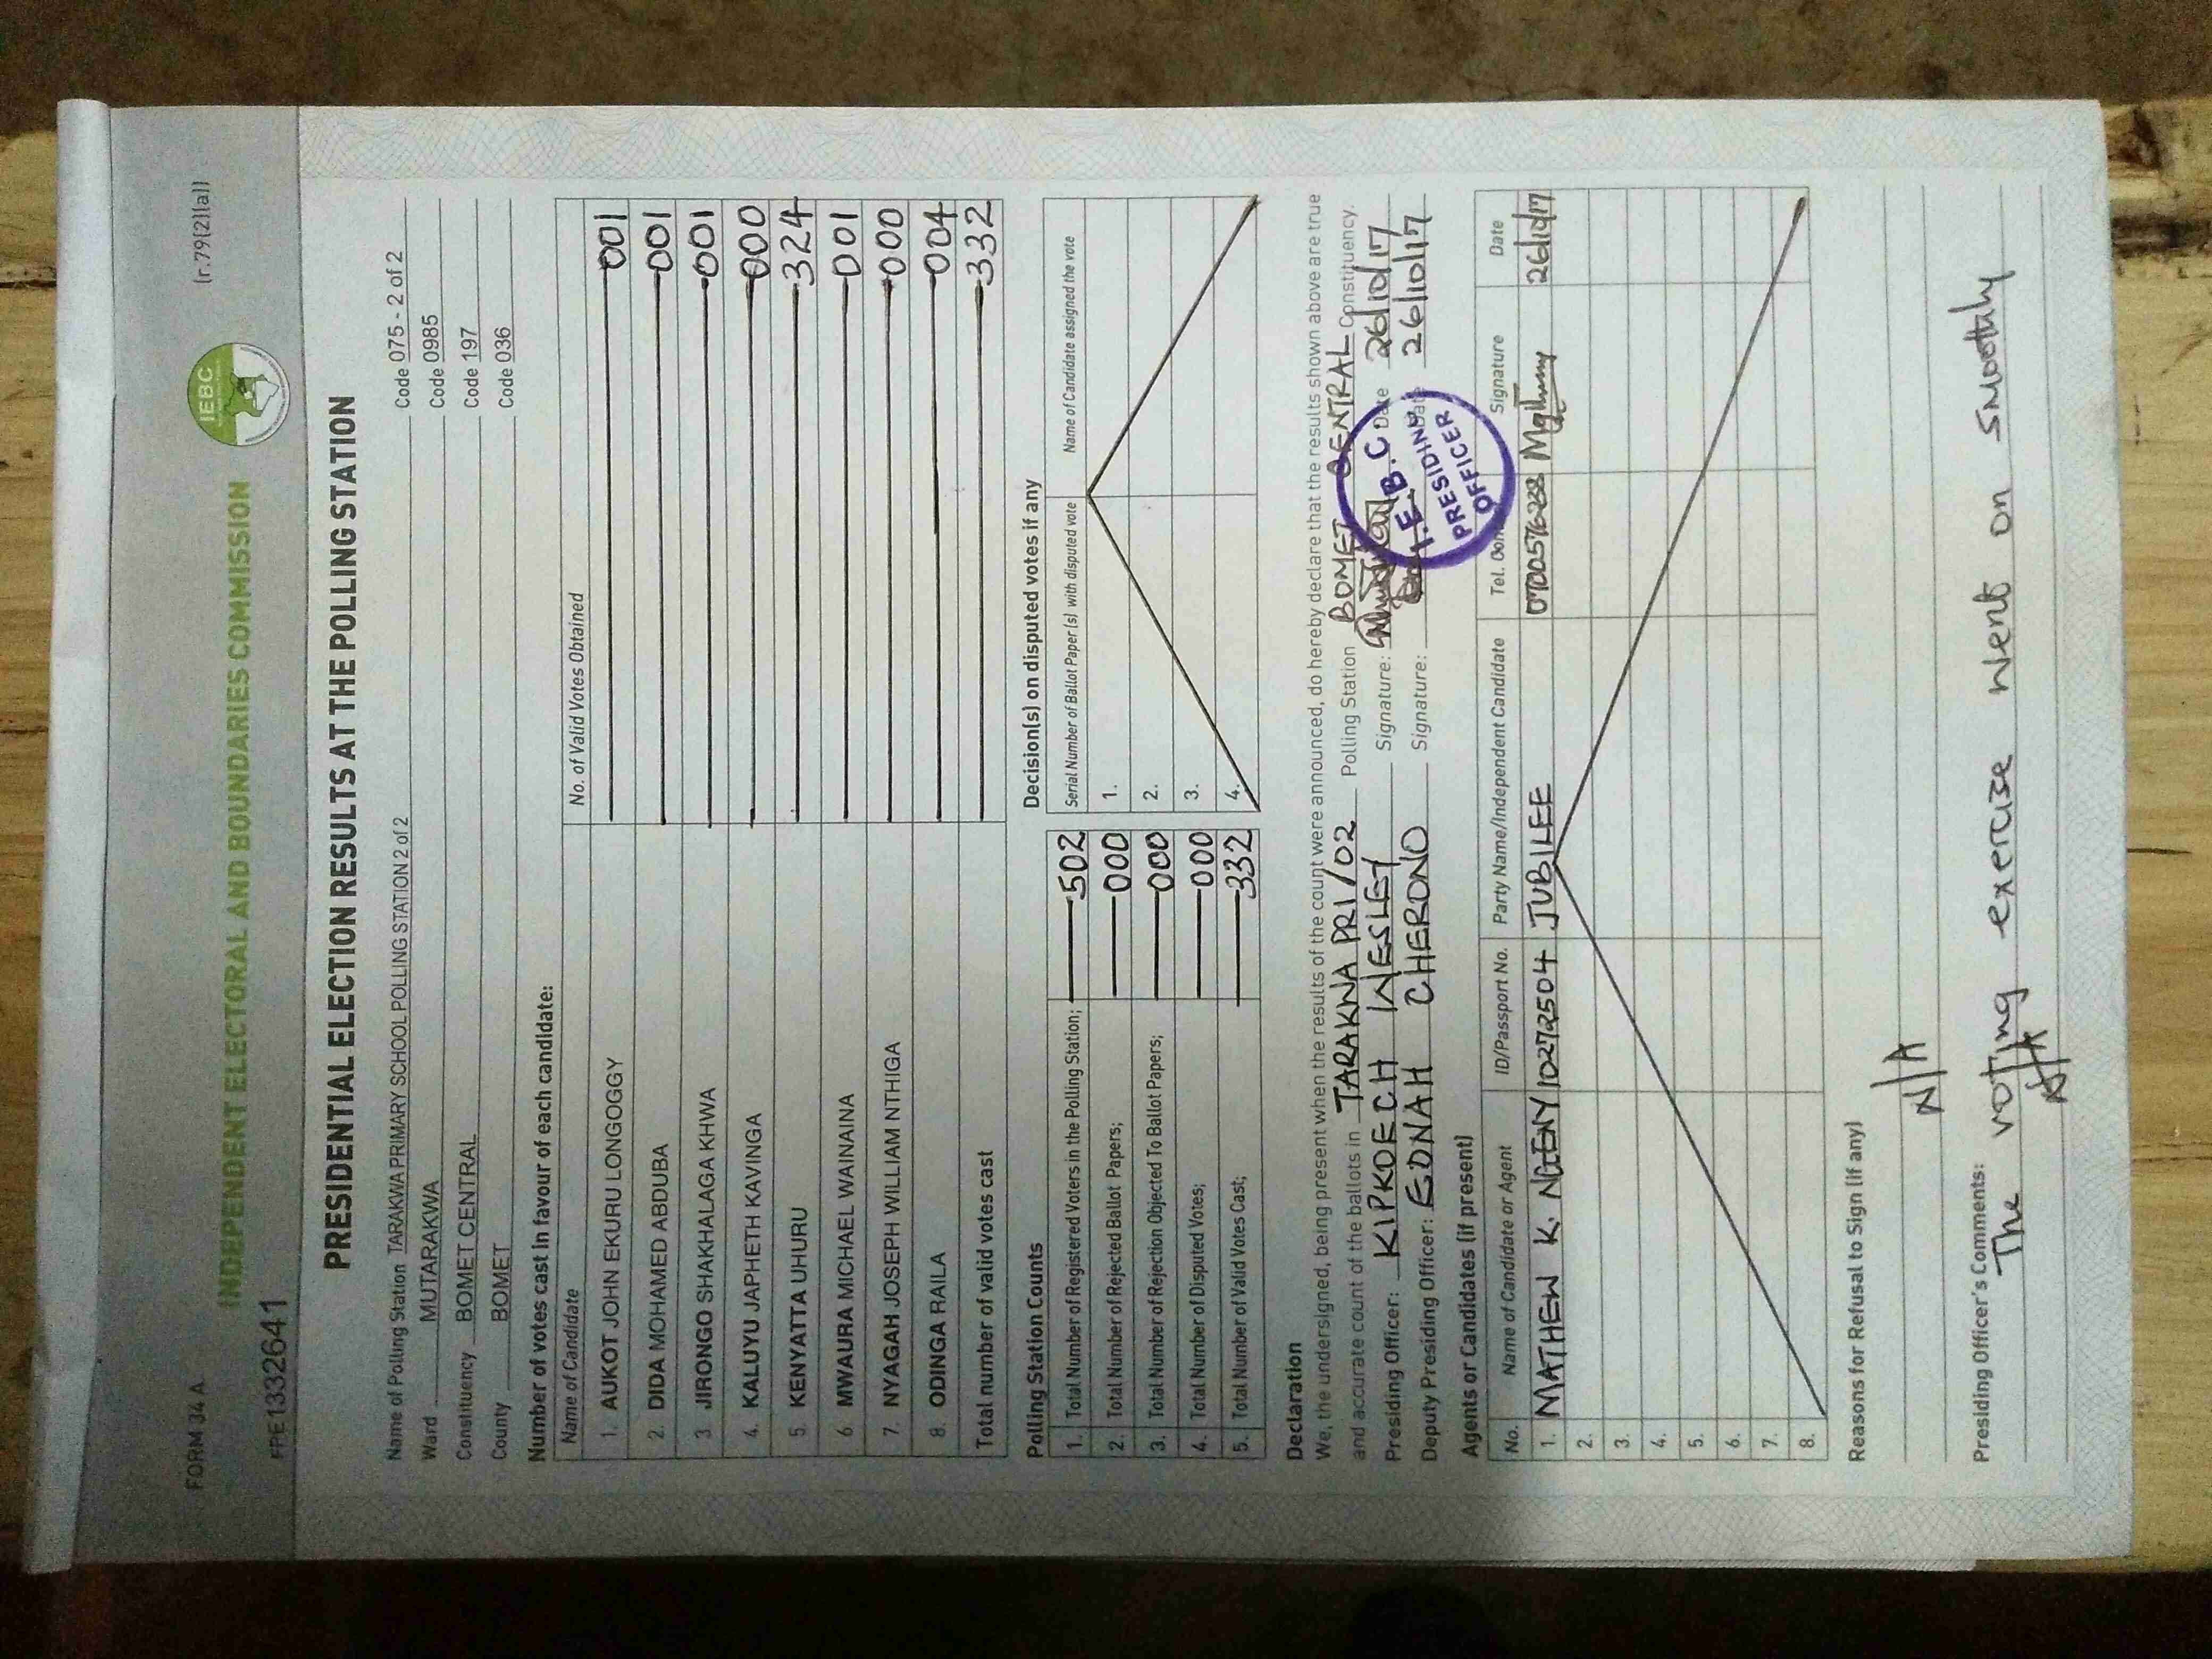 FORM 34 A
(r.79(2)(a))
IEBC
INDEPENDENT ELECTORAL AND BOUNDARIES COMMISSION
PRE1332641
PRESIDENTIAL ELECTION RESULTS AT THE POLLING STATION
Name of Polling Station TARAKWA PRIMARY SCHOOL POLLING STATION 2 of 2 Code 075 - 2 of 2
Ward MUTARAKWA Code 0985
Constituency BOMET CENTRAL Code 197
County BOMET Code 036
Number of votes cast in favour of each candidate:
Name of Candidate No. of Valid Votes Obtained
1. AUKOT JOHN EKURU LONGOGGY 001
2. DIDA MOHAMED ABDUBA 001
3 JIRONGO SHAKHALAGA KHWA 001
4. KALUYU JAPHETH KAVINGA 000
5. KENYATTA UHURU 324
6 MWAURA MICHAEL WAINAINA 001
7. NYAGAH JOSEPH WILLIAM NTHIGA 000
8. ODINGA RAILA 004
Total number of valid votes cast 332
Polling Station Counts
1. Total Number of Registered Voters in the Polling Station; 502
2. Total Number of Rejected Ballot Papers; 000
3. Total Number of Rejection Objected To Ballot Papers; 000
4. Total Number of Disputed Votes; 000
5. Total Number of Valid Votes Cast; 332
Decision(s) on disputed votes if any
Serial Number of Ballot Paper (s) with disputed vote Name of Candidate assigned the vote
1.
2.
3.
4.
Declaration
We, the undersigned, being present when the results of the count were announced, do hereby declare that the results shown above are true
and accurate count of the ballots in TARAKWA PRI/02 Polling Station BOMET CENTRAL Constituency.
Presiding Officer: KIPKOECH WESLEY Signature: Date 26/10/17
Deputy Presiding Officer: EDNAH CHERONO Signature: Date 26/10/17
I.E.B.C
PRESIDING
OFFICER
Agents or Candidates (if present)
No. Name of Candidate or Agent ID/Passport No. Party Name/Independent Candidate Tel. Signature Date
1. MATHEW K. NGENY 10272504 JUBILEE 0700576238 26/10/17
2.
3.
4.
5.
6.
7.
8.
Reasons for Refusal to Sign (if any)
N/A
Presiding Officer's Comments:
The voting exercise went on smoothly
N/A